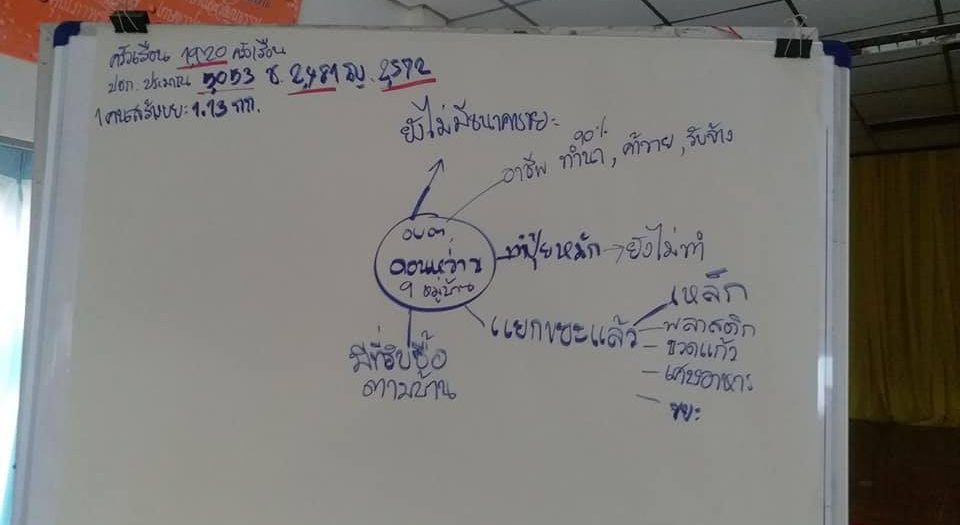 ครัวเรือน 1920 ครัวเรือน
ปชก. ประมาณ 5,053 ช. 2,481 ญ. 2,572
1 คนสร้างขยะ 1.13 กก.
ยังไม่มีธนาคารขยะ
90%
อาชีพ ทำนา, ค้าขาย, รับจ้าง
อบต
ดอนหว่าน
9 หมู่บ้าน
ทำปุ๋ยหมัก → ยังไม่ทำ
แยกขยะแล้ว
เหล็ก
- พลาสติก
- ขวดแก้ว
- เศษอาหาร
- ขยะ
มีที่รับซื้อ
ตามบ้าน